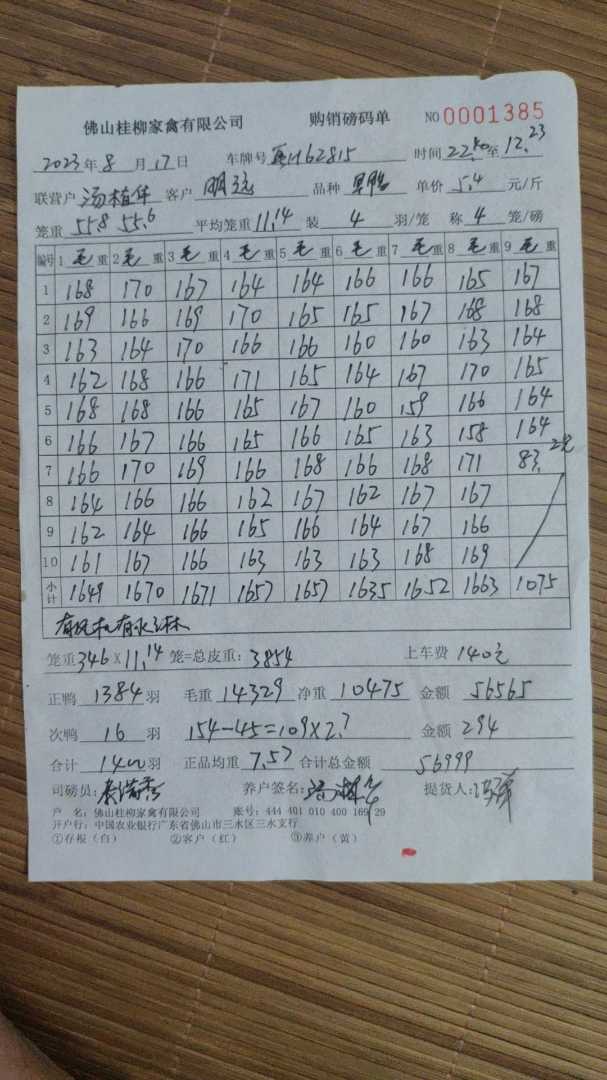 佛山桂柳家禽有限公司 购销磅码单 NO 0001385
2023年8月17日 车牌号 H62815 时间 22.40至12.23
联营户 汤植华 客户 明 品种 单价 5.4 元/斤
笼重 55.8 55.6 平均笼重 11.14 装 4 羽/笼 称 4 笼/磅
编号 1毛重 2毛重 3毛重 4毛重 5毛重 6毛重 7毛重 8毛重 9毛重
1 168 170 167 164 164 166 166 165 167
2 169 166 169 170 165 165 167 168 168
3 163 164 170 166 166 160 160 163 164
4 162 168 166 171 165 164 167 170 165
5 168 168 166 165 167 160 159 166 164
6 166 167 166 165 166 165 163 158 164
7 166 170 169 166 168 166 168 171 83.
8 164 166 166 162 167 162 167 167
9 162 164 166 165 166 164 167 166
10 161 167 166 163 163 163 168 169
小计 1649 1670 1671 1657 1657 1635 1652 1663 1075
笼重 346 X 11.14 笼=总皮重: 3854 上车费 140元
正鸭 1384 羽 毛重 14329 净重 10475 金额 56565
次鸭 16 羽 154-45=109X2.7 金额 294
合计 1400 羽 正品均重 7.57 合计总金额 56999
司磅员: 养户签名: 提货人:
户 名: 佛山桂柳家禽有限公司 账号: 444 401 010 400 169 29
开户行: 中国农业银行广东省佛山市三水区三水支行
①存根(白) ②客户(红) ③养户(黄)